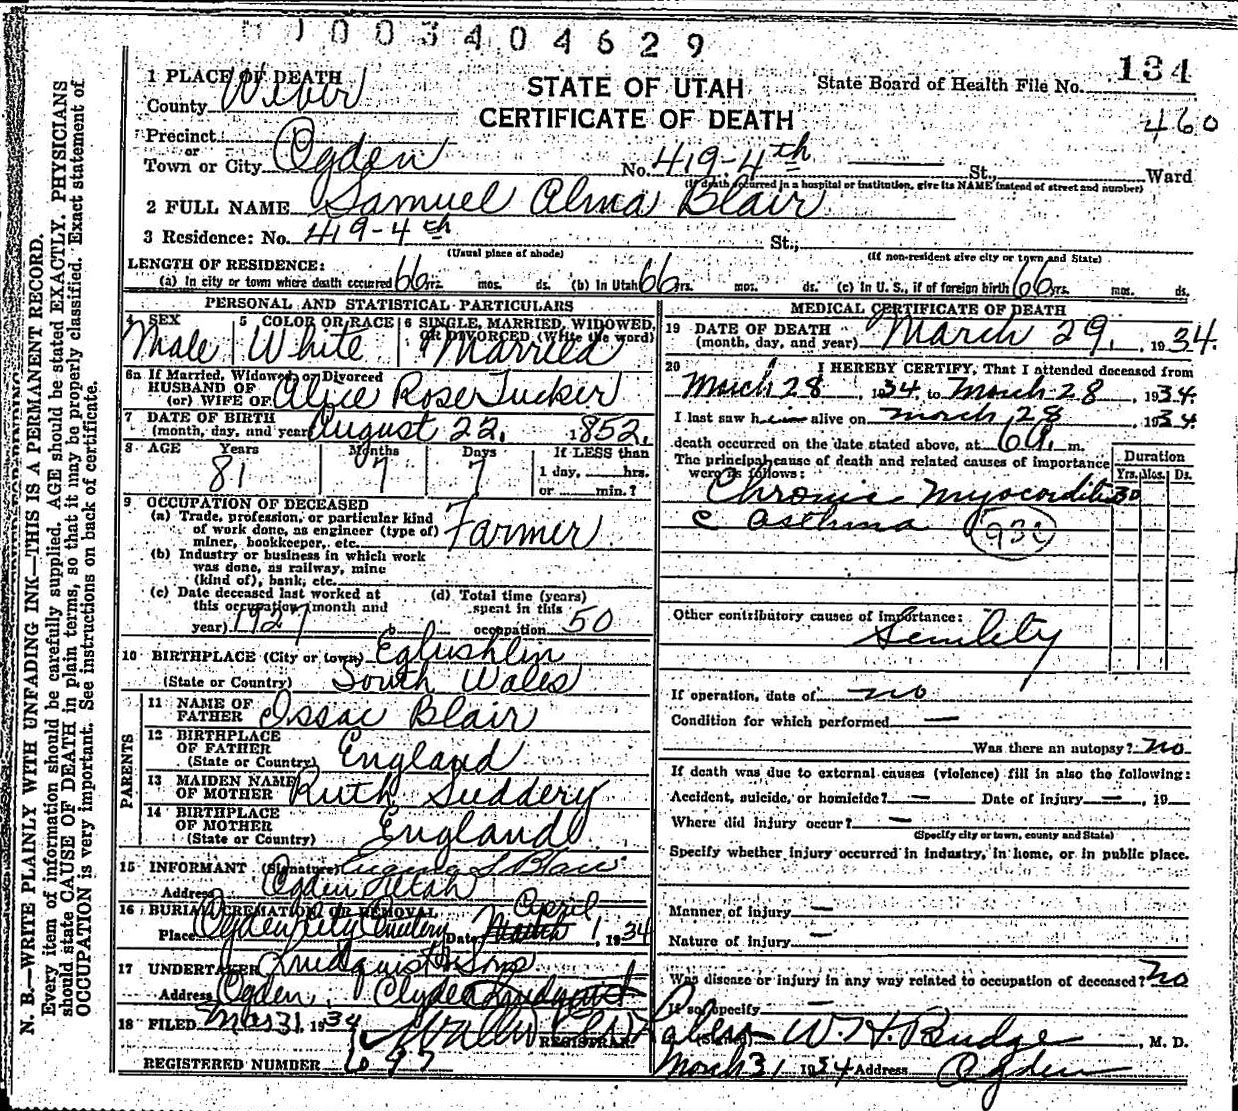 1003404629
134
1 PLACE OF DEATH
STATE OF UTAH
State Board of Health File No.
County Weber
CERTIFICATE OF DEATH
460
Precinct
or
Town or City Ogden No. 419-4th St., Ward
(If death occurred in a hospital or institution, give its NAME instead of street and number)
2 FULL NAME Samuel Alma Blair
3 Residence: No. 419-4th St.,
(Usual place of abode) (If non-resident give city or town and State)
LENGTH OF RESIDENCE:
(a) In city or town where death occurred 66 yrs. mos. ds. (b) In Utah 66 yrs. mos. ds. (c) In U. S., if of foreign birth 66 yrs. mos. ds.
PERSONAL AND STATISTICAL PARTICULARS
4 SEX 5 COLOR OR RACE 6 SINGLE, MARRIED, WIDOWED, OR DIVORCED (Write the word)
Male White Married
6a If Married, Widowed or Divorced
HUSBAND OF
(or) WIFE OF Alice Rose Tucker
7 DATE OF BIRTH
(month, day, and year) August 22, 1852.
8 AGE Years Months Days If LESS than
81 7 7 1 day, hrs.
or min.?
9 OCCUPATION OF DECEASED
(a) Trade, profession, or particular kind
of work done, as engineer (type of)
miner, bookkeeper, etc. Farmer
(b) Industry or business in which work
was done, as railway, mine
(kind of), bank, etc.
(c) Date deceased last worked at
this occupation (month and
year) 1927
(d) Total time (years)
spent in this
occupation 50
10 BIRTHPLACE (City or town)
(State or Country) South Wales
PARENTS
11 NAME OF
FATHER Issac Blair
12 BIRTHPLACE
OF FATHER
(State or Country) England
13 MAIDEN NAME
OF MOTHER Ruth Suddery
14 BIRTHPLACE
OF MOTHER
(State or Country) England
15 INFORMANT (Signature) Blair
Address Ogden Utah
16 BURIAL, CREMATION OR REMOVAL April
Place Ogden City Cemetery Date March 1, 1934
17 UNDERTAKER Lindquist & Sons
Address Ogden, Clyde Lindquist
18 FILED Mar 31, 1934
REGISTRAR
REGISTERED NUMBER
MEDICAL CERTIFICATE OF DEATH
19 DATE OF DEATH
(month, day, and year) March 29, 1934.
20 I HEREBY CERTIFY, That I attended deceased from
March 28, 1934, to March 28, 1934.
I last saw him alive on March 28, 1934
death occurred on the date stated above, at 6 a. m.
The principal cause of death and related causes of importance
were as follows:
Duration
Yrs. Mos. Ds.
Chronic Myocarditis 30
c Asthma 93c
Other contributory causes of importance:
Senility
If operation, date of no
Condition for which performed —
Was there an autopsy? no
If death was due to external causes (violence) fill in also the following:
Accident, suicide, or homicide? — Date of injury —, 19
Where did injury occur? —
(Specify city or town, county and State)
Specify whether injury occurred in industry, in home, or in public place.
Manner of injury —
Nature of injury —
Was disease or injury in any way related to occupation of deceased? no
If so, specify —
(Signed) W. H. Budge, M. D.
March 31 1934 Address Ogden
N. B.—WRITE PLAINLY WITH UNFADING INK—THIS IS A PERMANENT RECORD.
Every item of information should be carefully supplied. AGE should be stated EXACTLY. PHYSICIANS
should state CAUSE OF DEATH in plain terms, so that it may be properly classified. Exact statement of
OCCUPATION is very important. See instructions on back of certificate.